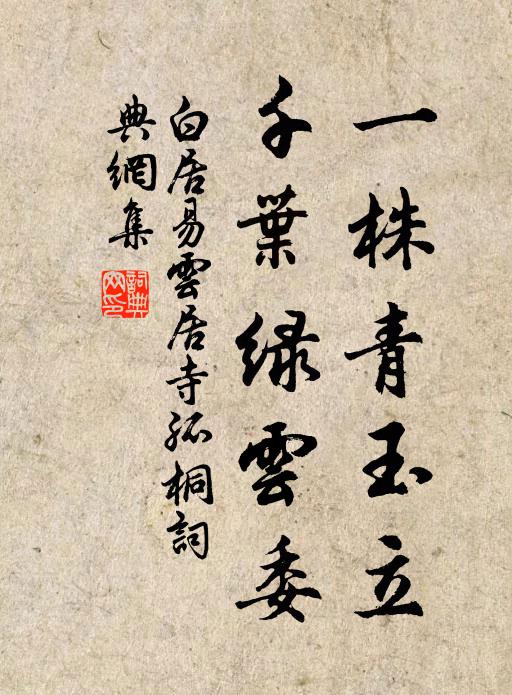 一株青玉立
千葉緑雲委
白居易雲居寺孤桐詞
典網集
詞典
网印